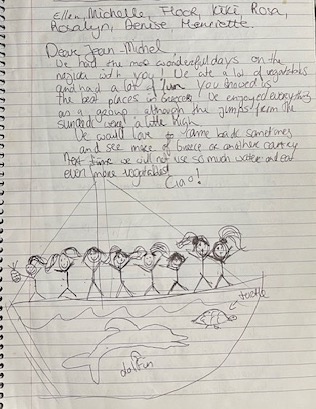 Ellen, Michelle, Floor, Kiki, Rosa,
Rosalyn, Denise Henriette.
Deare Jean-Michel
We had the most wonderful days on the
with you! We ate a lot of vegetables
and had a lot of fun. You showed us
the best places in Greece. We enjoyed everything
as a group, although the jumps from the
sundeck were a little high.
We would love to came back sometimes
and see more of Greece or another country
Next time we will not use so much water and eat
even more vegetables!
Ciao!
turtle
dolfun